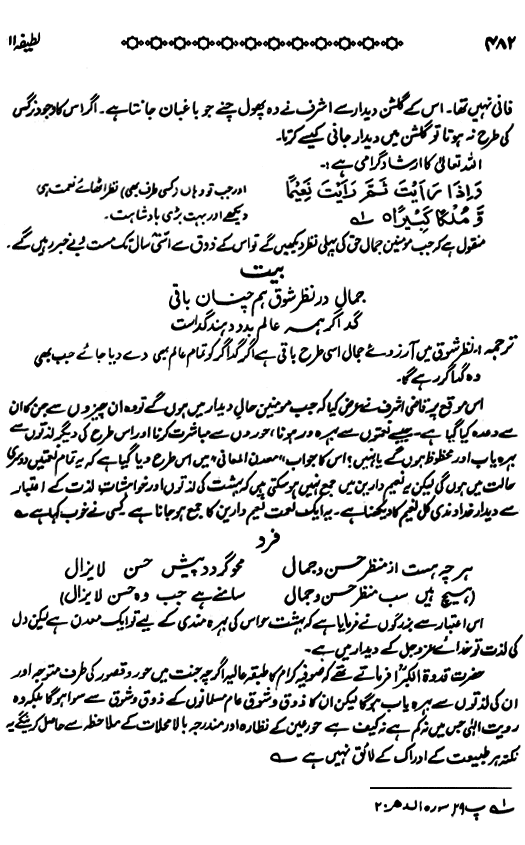 ۴۸۲
لطیفہ ۱۱
فانی نہیں تھا۔ اس کے گلشن دیدار سے اشرف نے وہ پھول چنے جو باغبان جانتا ہے۔ اگر اس کا وجود نرگس
کی طرح نہ ہوتا تو گلشن میں دیدار جانی کیسے کرتا۔
اللہ تعالیٰ کا ارشاد گرامی ہے :۔
وَاِذَا رَاَیْتَ ثَمَّ رَاَیْتَ نَعِیْمًا
وَّ مُلْکًا کَبِیْرًا ۵ ۱؎
اور جب تو وہاں (کسی طرف بھی) نظر اٹھائے نعمت ہی
دیکھے اور بہت بڑی بادشاہت۔
منقول ہے کہ جب مومنین جمال حق کی پہلی نظر دیکھیں گے تو اس کے ذوق سے اسّی سال تک مست بے خبر رہیں گے۔
بیت
جمال در نظر شوق ہم چنان باقی
گدا گر ہمہ عالم بدو دہند گداست
ترجمہ :۔ نظر شوق میں آرزوئے جمال اسی طرح باقی ہے اگر گداگر کو تمام عالم بھی دے دیا جائے جب بھی
وہ گداگر رہے گا۔
اس موقع پر قاضی اشرف نے عرض کیا کہ جب مومنین حالِ دیدار میں ہوں گے تو وہ ان چیزوں سے جن کا ان
سے وعدہ کیا گیا ہے۔ جیسے نعمتوں سے بہرہ ور ہونا، حوروں سے مباشرت کرنا اور اس طرح کی دیگر لذتوں سے
بہرہ یاب اور محظوظ ہوں گے یا نہیں؟ اس کا جواب "معدن المعانی" میں اس طرح دیا گیا ہے کہ یہ تمام نعمتیں دوسری
حالت میں ہوں گی لیکن یہ نعیم دارین میں جمع نہیں ہو سکتی ہیں کہ بہشت کی لذتوں اور خواہشات لذت کے اعتبار
سے دیدار خداوندی کل نعیم کا دیکھنا ہے۔ یہ ایک نعمت نعیم دارین کا جمع ہو جانا ہے کسی نے خوب کہا ہے
فرد
ہر چہ ہست از منظر حسن و جمال محو گردد پیش حسن لایزال
(ہیچ ہیں سب منظر حسن و جمال سامنے ہے جب وہ حسن لایزال)
اس اعتبار سے بزرگوں نے فرمایا ہے کہ بہشت حواس کی بہرہ مندی کے لیے تو ایک معدن ہے لیکن دل
کی لذت تو خدائے عزوجل کے دیدار میں ہے۔
حضرت قدوۃ الکبرٰؒا فرماتے تھے کہ صوفیہ کرام کا طبقہ عالیہ اگرچہ جنت میں حور و قصور کی طرف متوجہ اور
ان کی لذتوں سے بہرہ یاب ہوگا لیکن ان کا ذوق و شوق عام مسلمانوں کے ذوق و شوق سے سوا ہوگا بلکہ وہ
رویت الٰہی جس میں نہ کم ہے نہ کیف ہے حور عین کے نظارہ اور مندرجہ بالا محلات کے ملاحظہ سے حاصل کریں گے یہ
نکتہ ہر طبیعت کے ادراک کے لائق نہیں ہے
۱؎ پ ۲۹ سورہ الدھر ۲۰